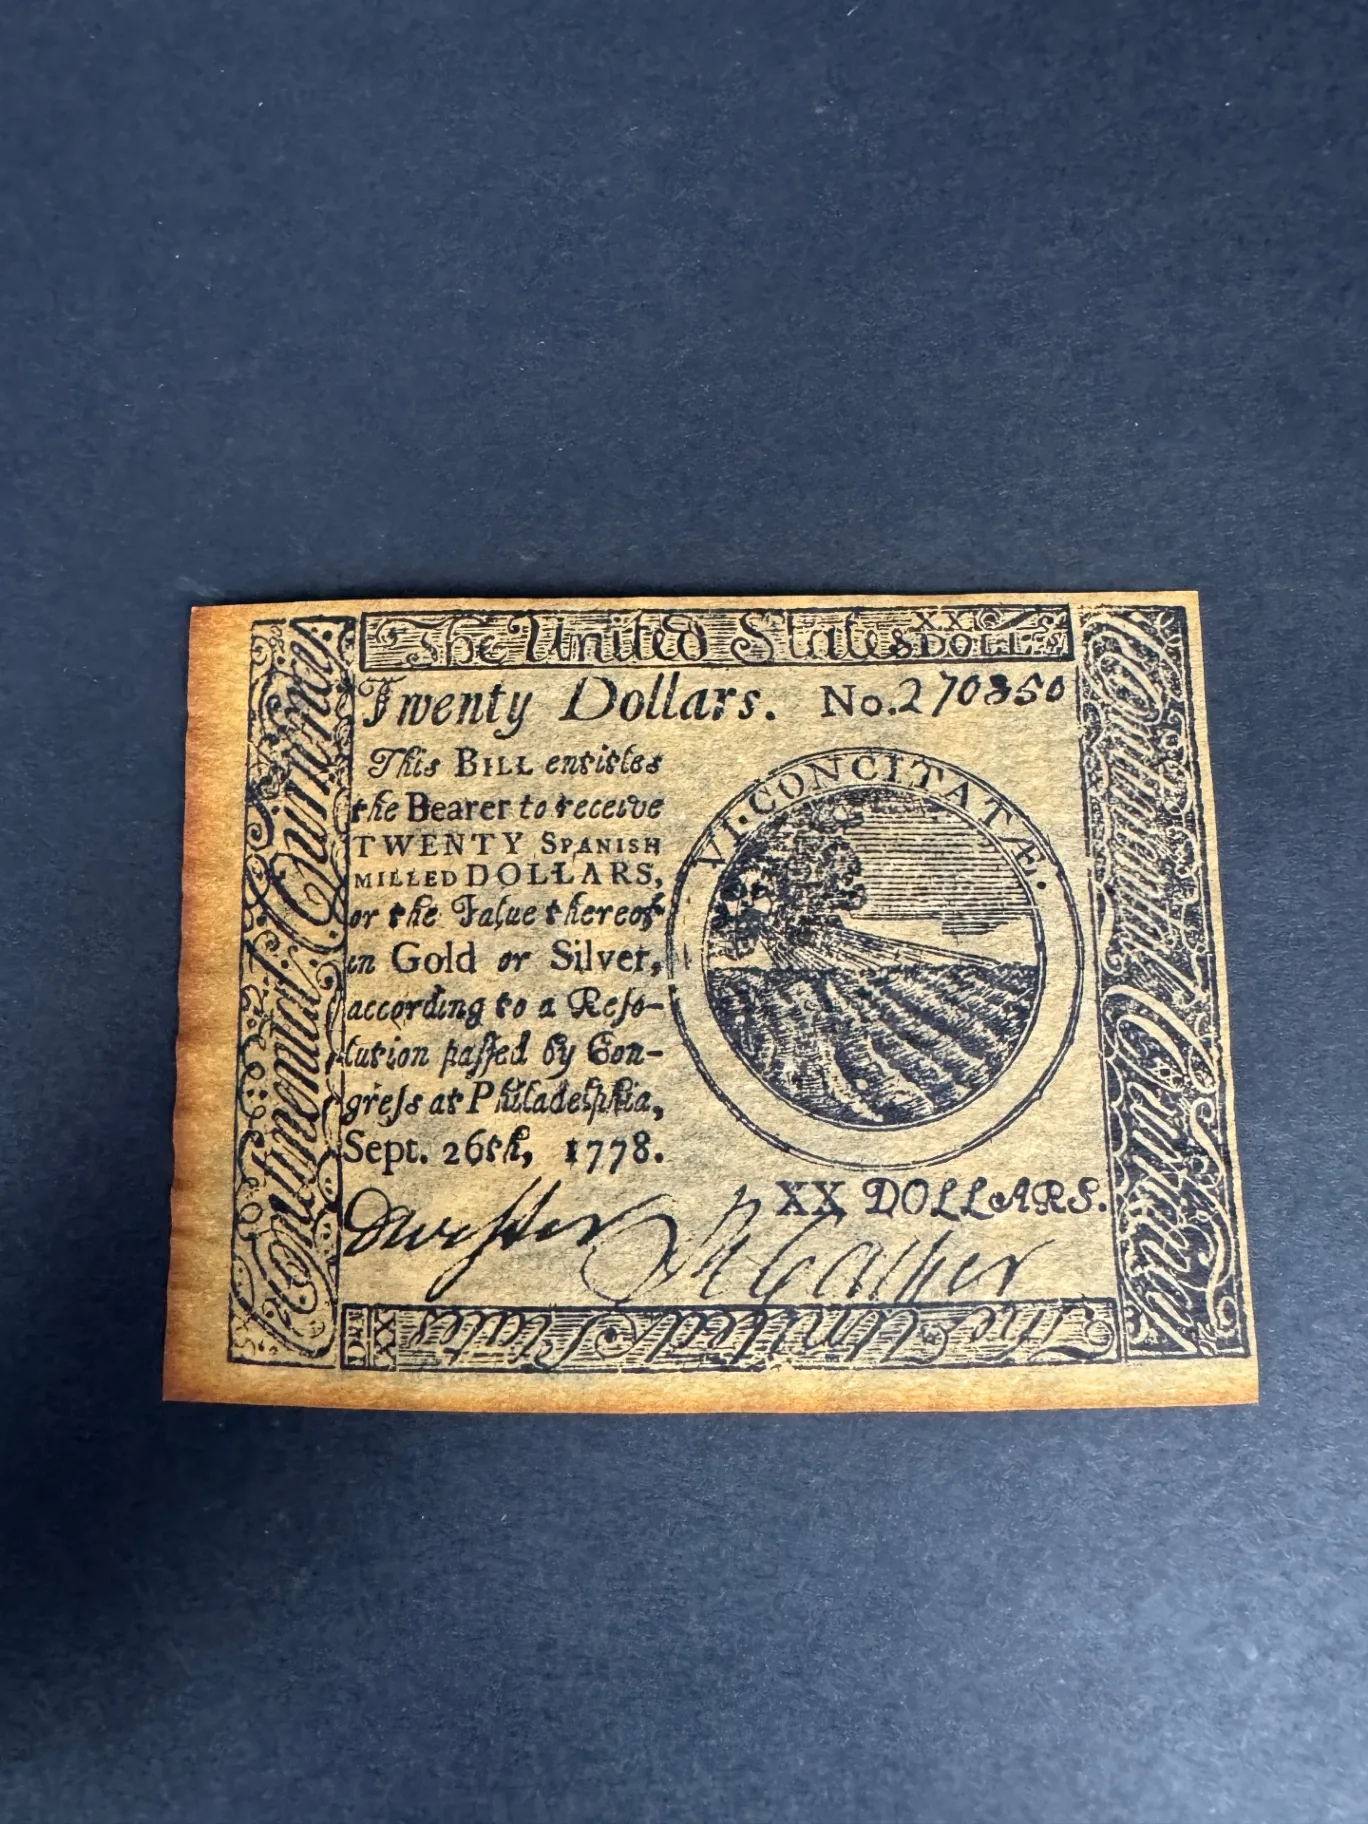 The United States
XX DOLLS
Twenty Dollars. No. 270350
This BILL entitles
the Bearer to receive
TWENTY SPANISH
MILLED DOLLARS,
or the Value thereof
in Gold or Silver,
according to a Reſo-
lution paſſed by Con-
greſs at Philadelphia,
Sept. 26th, 1778.
VI·CONCITATÆ.
XX DOLLARS.
Continental Currency
Continental Currency
The United States
XX